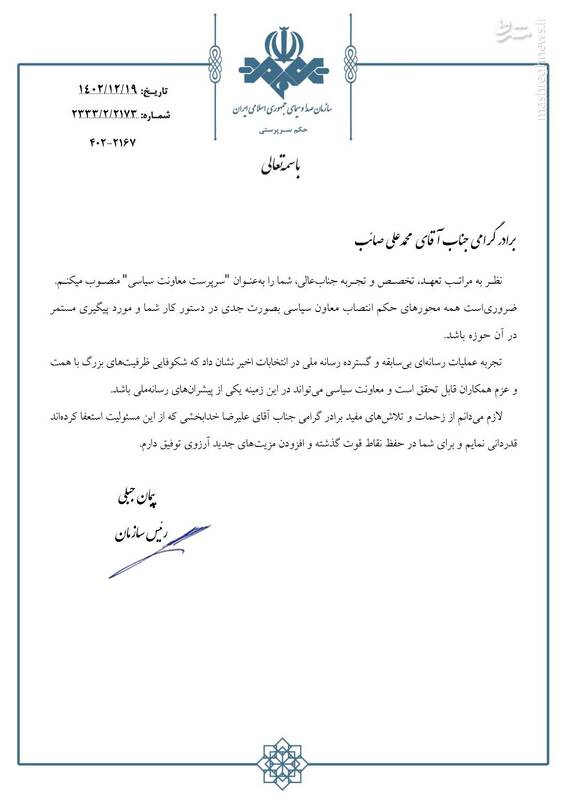 مشرق
mashreghnews.ir
سازمان صدا و سیمای جمهوری اسلامی ایران
حکم سرپرستی
تاریخ: ۱۴۰۲/۱۲/۱۹
شماره: ۲۳۳۳/۲/۲۱۷۳
۴۰۲-۲۱۶۷
باسمه تعالی
برادر گرامی جناب آقای محمدعلی صائب
نظر به مراتب تعهد، تخصص و تجربه جناب‌عالی، شما را به‌عنوان "سرپرست معاونت سیاسی" منصوب میکنم.
ضروری‌است همه محورهای حکم انتصاب معاون سیاسی بصورت جدی در دستور کار شما و مورد پیگیری مستمر
در آن حوزه باشد.
تجربه عملیات رسانه‌ای بی‌سابقه و گسترده رسانه ملی در انتخابات اخیر نشان داد که شکوفایی ظرفیت‌های بزرگ با همت
و عزم همکاران قابل تحقق است و معاونت سیاسی می‌تواند در این زمینه یکی از پیشران‌های رسانه‌ملی باشد.
لازم می‌دانم از زحمات و تلاش‌های مفید برادر گرامی جناب آقای علیرضا خدابخشی که از این مسئولیت استعفا کرده‌اند
قدردانی نمایم و برای شما در حفظ نقاط قوت گذشته و افزودن مزیت‌های جدید آرزوی توفیق دارم.
پیمان جبلی
رئیس سازمان